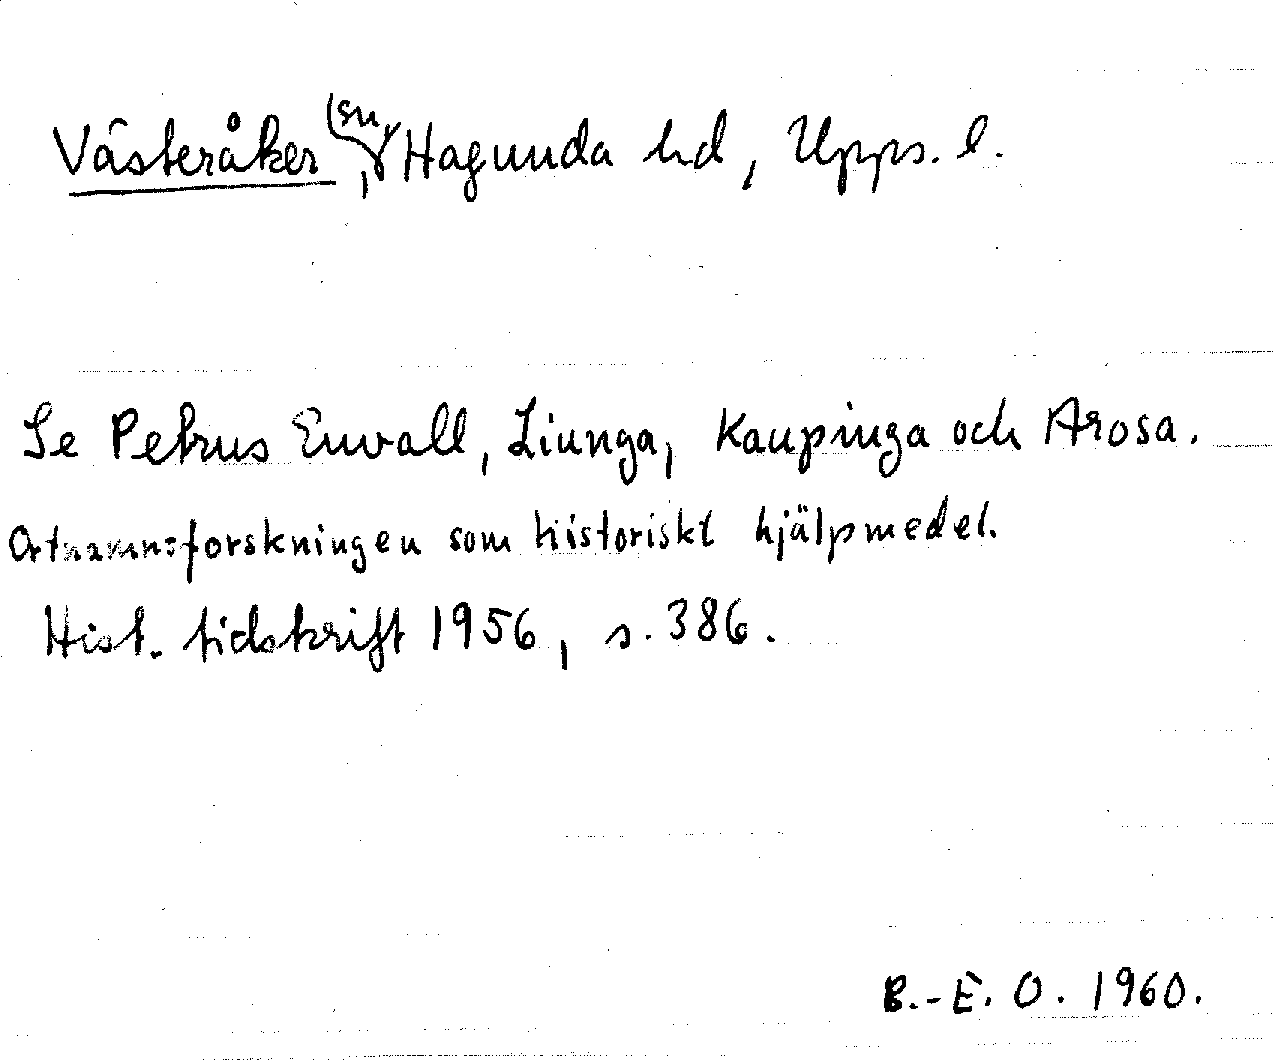 Västeråker (sn), Hagunda hd, Upps. l.
Se Petrus Envall, Liunga, Kaupinga och Arosa.
Ortnamnsforskningen som historiskt hjälpmedel.
Hist. tidskrift 1956, s. 386.
B.-E. O. 1960.